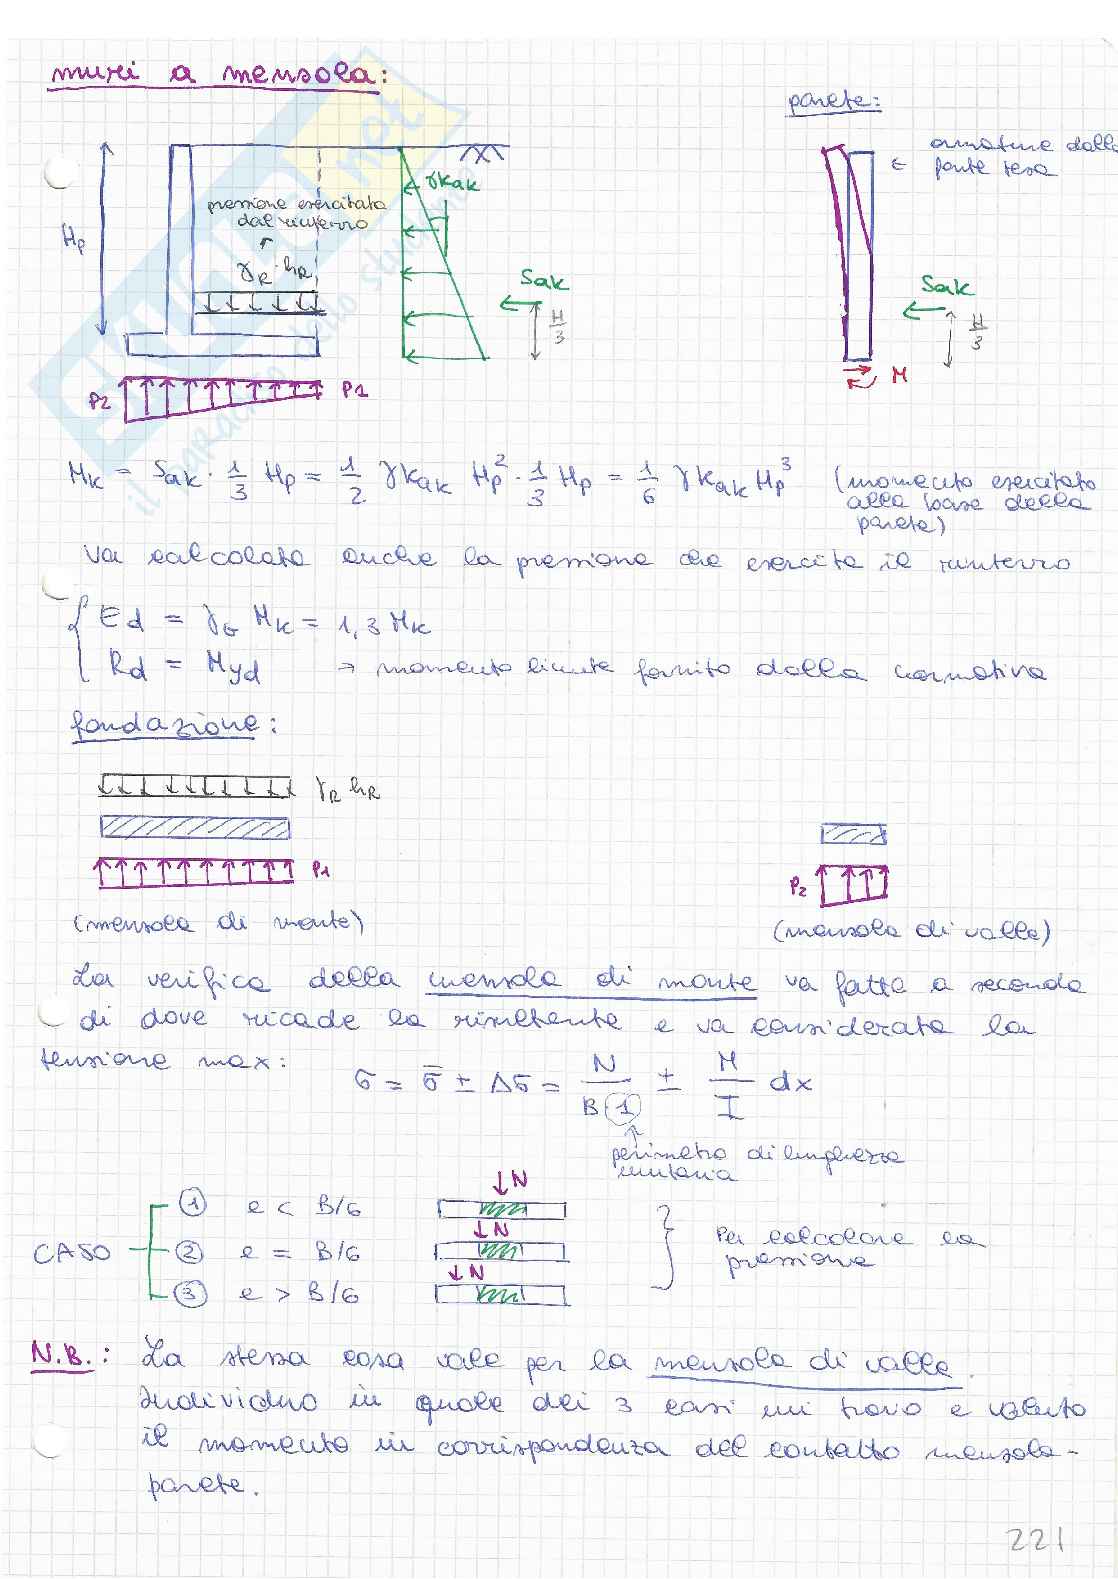 muri a mensola:
parete:
armature dalla
parte tesa
γkak
pressione esercitata
dal rinterro
Hp
γR · hR
Sak
H/3
Sak
H/3
M
P2
P1
Mk = Sak · 1/3 Hp = 1/2 γkak Hp² · 1/3 Hp = 1/6 γkak Hp³ (momento esercitato
alla base della
parete)
va calcolata anche la pressione che esercita il rinterro
Ed = γG Mk = 1,3 Mk
Rd = Myd → momento limite fornito dalla normativa
fondazione:
γR hR
P1
P2
(mensola di monte)
(mensola di valle)
La verifica della mensola di monte va fatta a seconda
di dove ricade la risultante e va considerata la
tensione max:
σ = σ̄ ± Δσ = N/B(1) ± M/I dx
perimetro di lunghezza
unitaria
N
① e < B/6
N
CASO ② e = B/6
Per calcolare la
pressione
N
③ e > B/6
N.B.: La stessa cosa vale per la mensola di valle.
Individuo in quale dei 3 casi mi trovo e valuto
il momento in corrispondenza del contatto mensola-
parete.
221